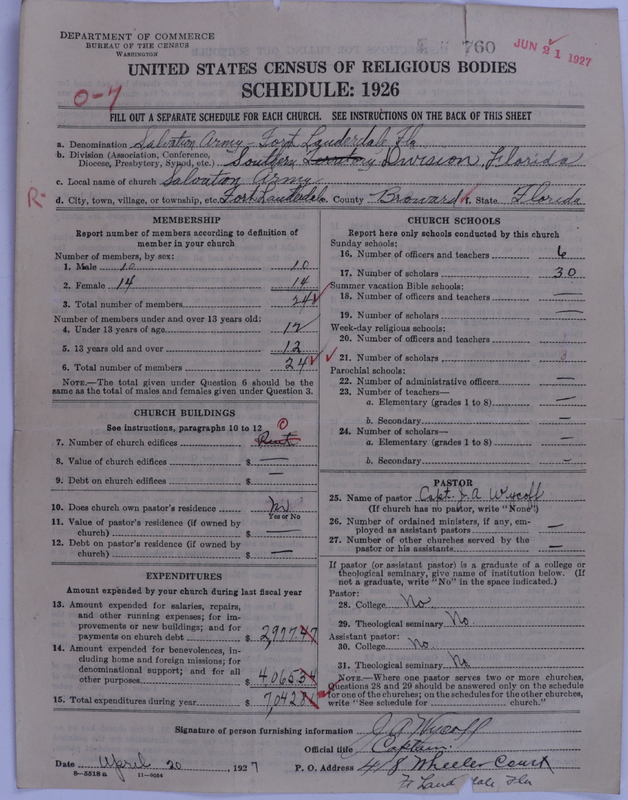 DEPARTMENT OF COMMERCE
BUREAU OF THE CENSUS
WASHINGTON
760
JUN 21 1927
UNITED STATES CENSUS OF RELIGIOUS BODIES
SCHEDULE: 1926
0-7
FILL OUT A SEPARATE SCHEDULE FOR EACH CHURCH. SEE INSTRUCTIONS ON THE BACK OF THIS SHEET
a. Denomination Salvation Army - Fort Lauderdale, Fla
b. Division (Association, Conference, Diocese, Presbytery, Synod, etc.) Southern Division, Florida
c. Local name of church Salvaton Army
R.
d. City, town, village, or township, etc. Fort Lauderdale e. County Broward f. State Florida
MEMBERSHIP
Report number of members according to definition of
member in your church
Number of members, by sex:
1. Male 10 10
2. Female 14 14
3. Total number of members 24
Number of members under and over 13 years old:
4. Under 13 years of age 12
5. 13 years old and over 12
6. Total number of members 24
NOTE.—The total given under Question 6 should be the
same as the total of males and females given under Question 3.
CHURCH BUILDINGS
See instructions, paragraphs 10 to 12
0
7. Number of church edifices Rent
8. Value of church edifices $ —
9. Debt on church edifices $ —
10. Does church own pastor's residence No
Yes or No
11. Value of pastor's residence (if owned by
church) $ —
12. Debt on pastor's residence (if owned by
church) $ —
EXPENDITURES
Amount expended by your church during last fiscal year
13. Amount expended for salaries, repairs,
and other running expenses; for im-
provements or new buildings; and for
payments on church debt $ 2,977.47
14. Amount expended for benevolences, in-
cluding home and foreign missions; for
denominational support; and for all
other purposes $ 4,065.34
15. Total expenditures during year $ 7,042.81
CHURCH SCHOOLS
Report here only schools conducted by this church
Sunday schools:
16. Number of officers and teachers 6
17. Number of scholars 30
Summer vacation Bible schools:
18. Number of officers and teachers —
19. Number of scholars —
Week-day religious schools:
20. Number of officers and teachers
21. Number of scholars
Parochial schools:
22. Number of administrative officers —
23. Number of teachers—
a. Elementary (grades 1 to 8) —
b. Secondary —
24. Number of scholars—
a. Elementary (grades 1 to 8) —
b. Secondary –
PASTOR
25. Name of pastor Capt. J. A Wycoff
(If church has no pastor, write "None")
26. Number of ordained ministers, if any, em-
ployed as assistant pastors —
27. Number of other churches served by the
pastor or his assistants —
If pastor (or assistant pastor) is a graduate of a college or
theological seminary, give name of institution below. (If
not a graduate, write "No" in the space indicated.)
Pastor:
28. College No
29. Theological seminary No.
Assistant pastor:
30. College No.
31. Theological seminary No
NOTE.—Where one pastor serves two or more churches,
Questions 28 and 29 should be answered only on the schedule
for one of the churches; on the schedules for the other churches,
write "See schedule for church."
Signature of person furnishing information J A Wycoff
Official title Captain.
Date April 20, 1927 P. O. Address 418 Wheeler Court
Ft Laud dale Fla
8—5518 a 11—9084